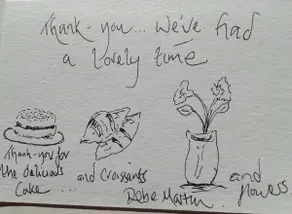 Thank-you... we've had
a lovely time
Thank-you for
the delicious
Cake ...
and Croissants
and
flowers